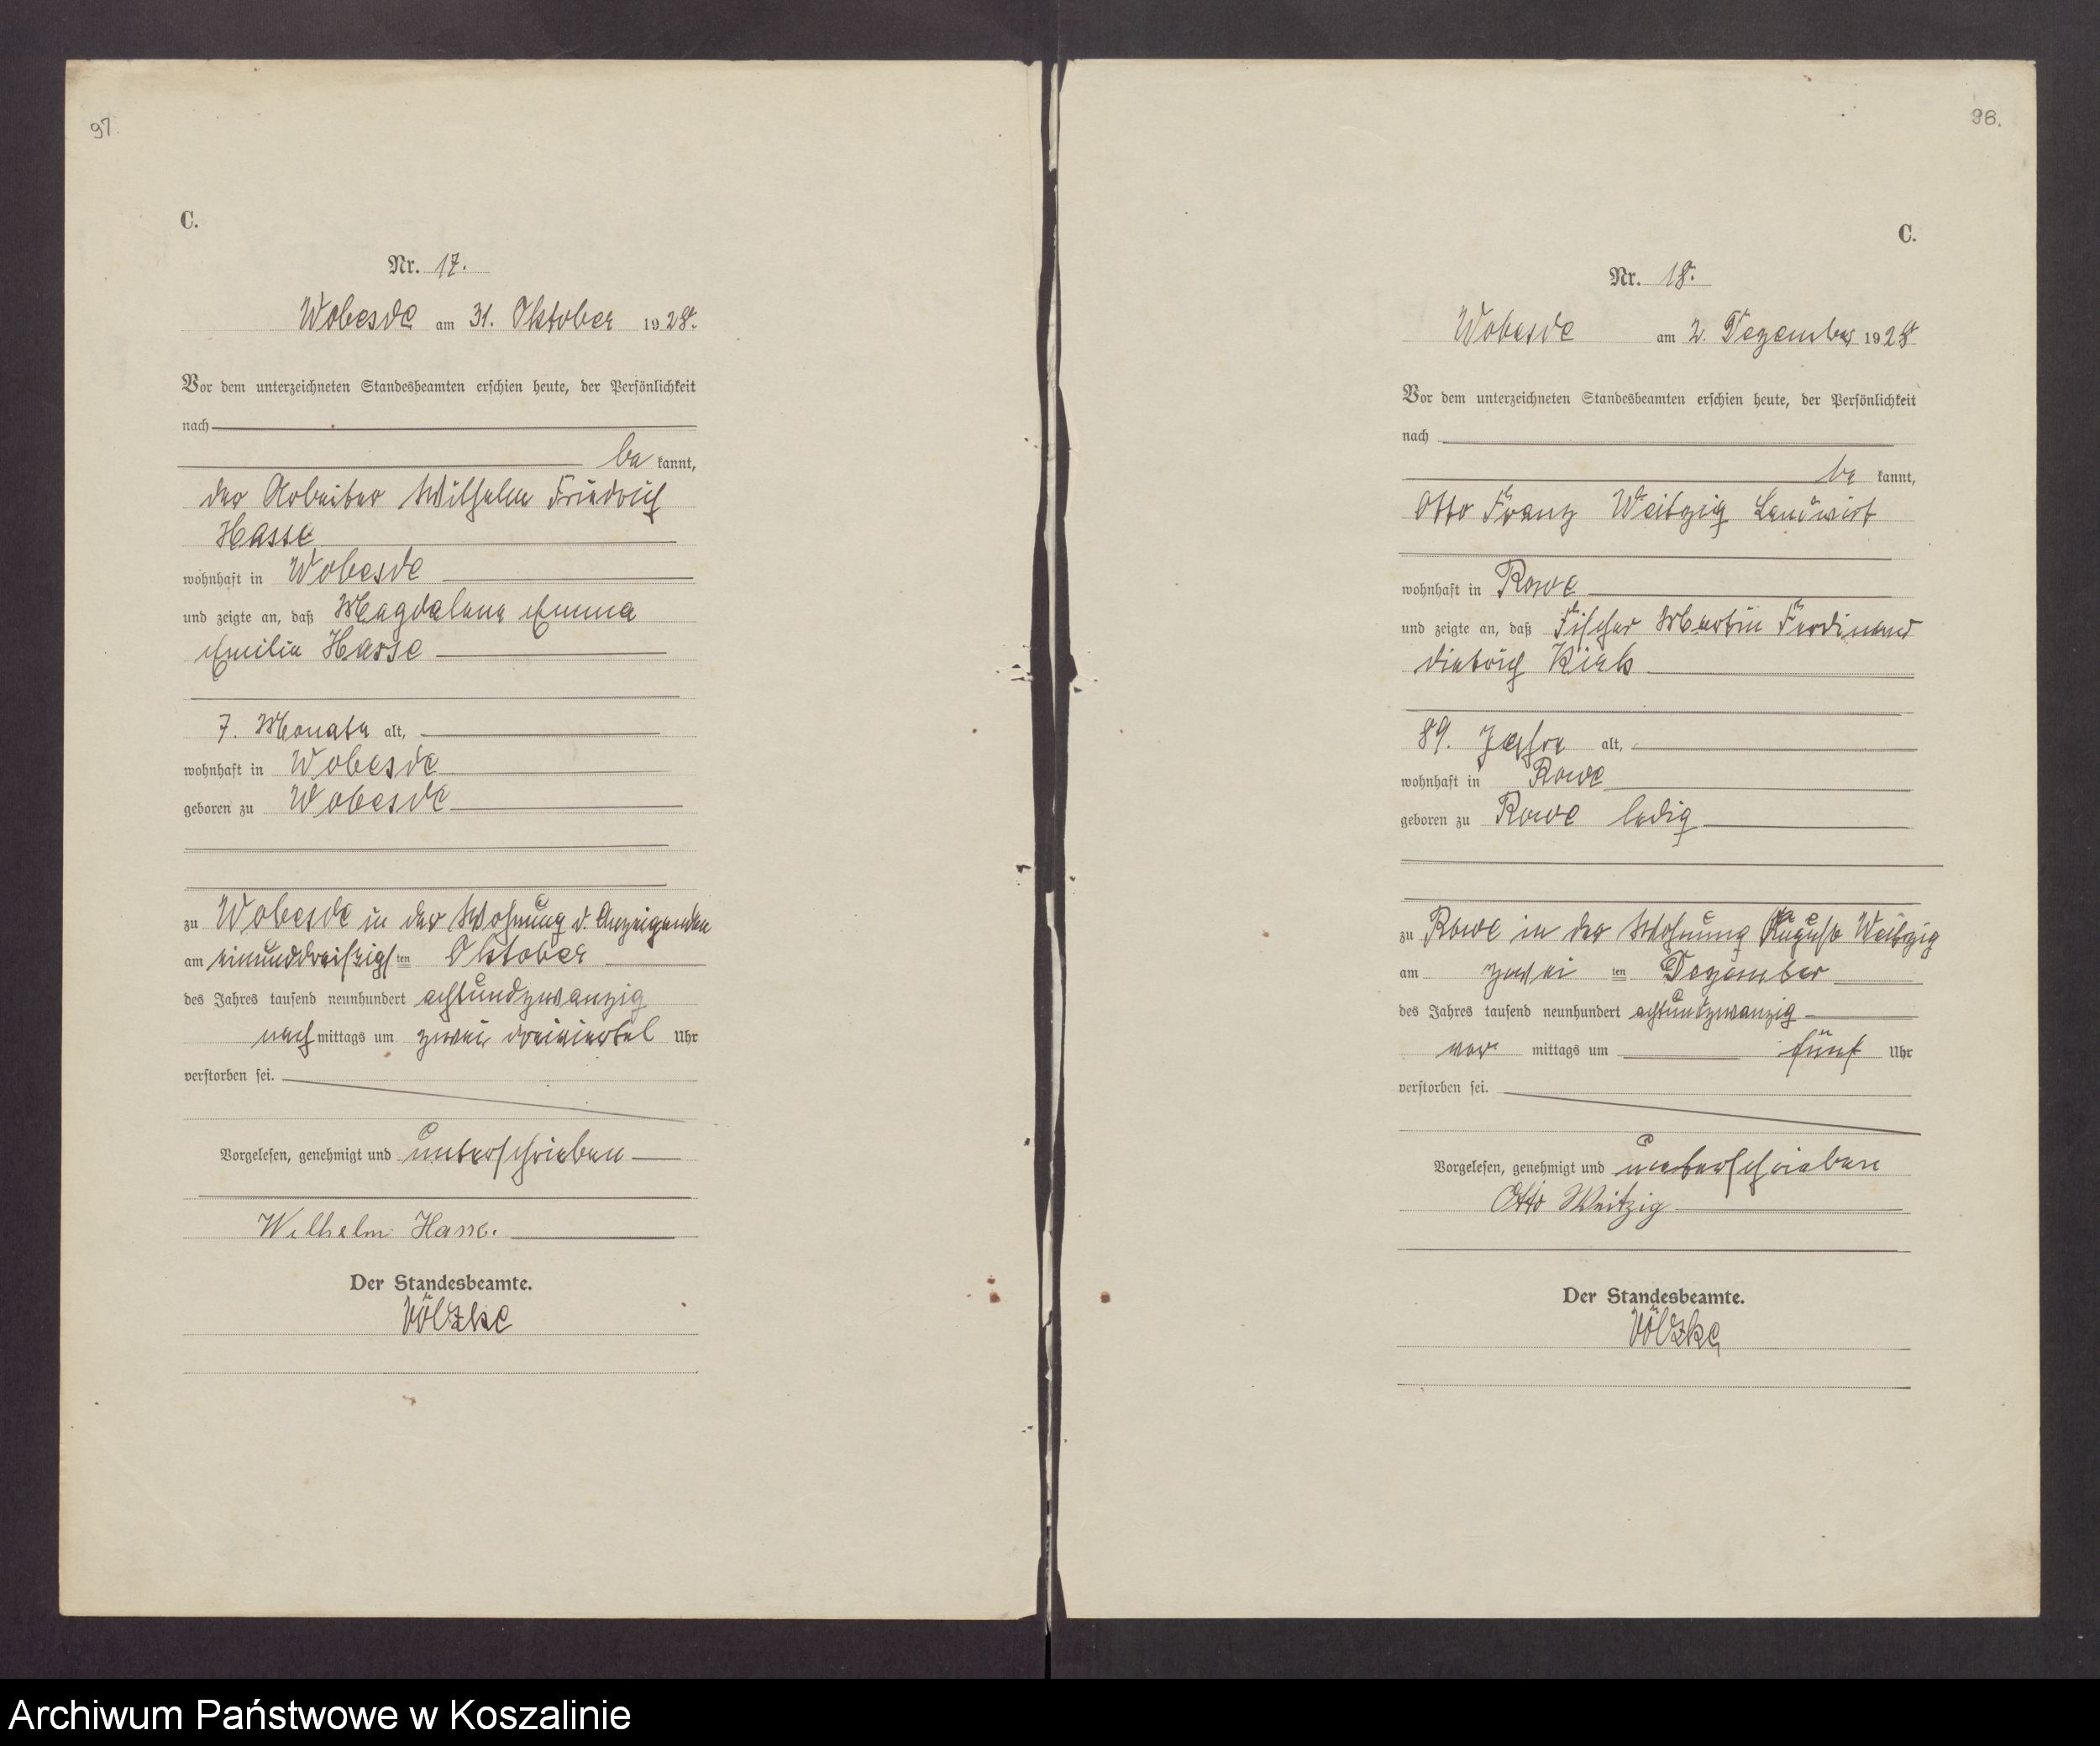 97.
C.
Nr. 17.
Wobesde am 31. Oktober 1928.
Vor dem unterzeichneten Standesbeamten erschien heute, der Persönlichkeit
nach
be kannt,
der Arbeiter Wilhelm Friedrich
Hasse
wohnhaft in Wobesde
und zeigte an, daß Magdalena Emma
Emilie Hasse
7. Monate alt,
wohnhaft in Wobesde
geboren zu Wobesde
zu Wobesde in der Wohnung d. Anzeigenden
am einunddreißigsten Oktober
des Jahres tausend neunhundert achtundzwanzig
nach mittags um zwei dreiviertel Uhr
verstorben sei.
Vorgelesen, genehmigt und unterschrieben
Wilhelm Hasse.
Der Standesbeamte.
Völzke
98.
C.
Nr. 18.
Wobesde am 2. Dezember 1928
Vor dem unterzeichneten Standesbeamten erschien heute, der Persönlichkeit
nach
be kannt,
Otto Franz Weitzig Landwirt
wohnhaft in Rowe
und zeigte an, daß Fischer Martin Ferdinand
Dietrich
89. Jahre alt,
wohnhaft in Rowe
geboren zu Rowe ledig
zu Rowe in der Wohnung August Weitzig
am zwei ten Dezember
des Jahres tausend neunhundert achtundzwanzig
vor mittags um fünf Uhr
verstorben sei.
Vorgelesen, genehmigt und unterschrieben
Otto Weitzig
Der Standesbeamte.
Völzke
Archiwum Państwowe w Koszalinie